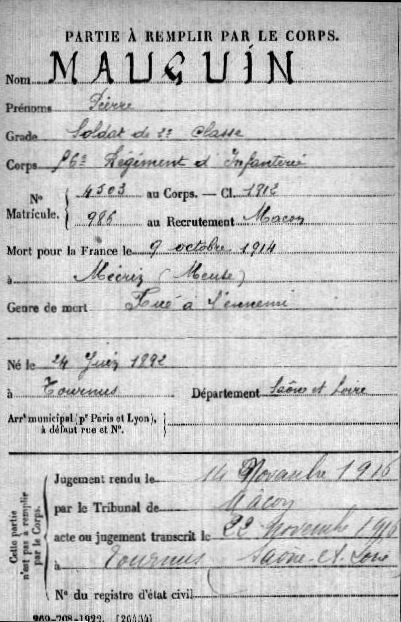 PARTIE À REMPLIR PAR LE CORPS.
Nom MAUGUIN
Prénoms Pierre
Grade Soldat de 2e Classe
Corps 56e Régiment d'Infanterie
Nº Matricule. { 4503 au Corps. — Cl. 1912
986 au Recrutement Macon
Mort pour la France le 9 octobre 1914
à (Meuse)
Genre de mort Tué à l'ennemi
Né le 24 Juin 1892
à Tournus Département Saône et Loire
Arrt municipal (pr Paris et Lyon), à défaut rue et Nº. }
Cette partie n'est pas à remplir par le Corps.
Jugement rendu le 14 Novembre 1916
par le Tribunal de Macon
acte ou jugement transcrit le 22 Novembre 1916
à Tournus Saône-et-Loire
Nº du registre d'état civil
[26434]